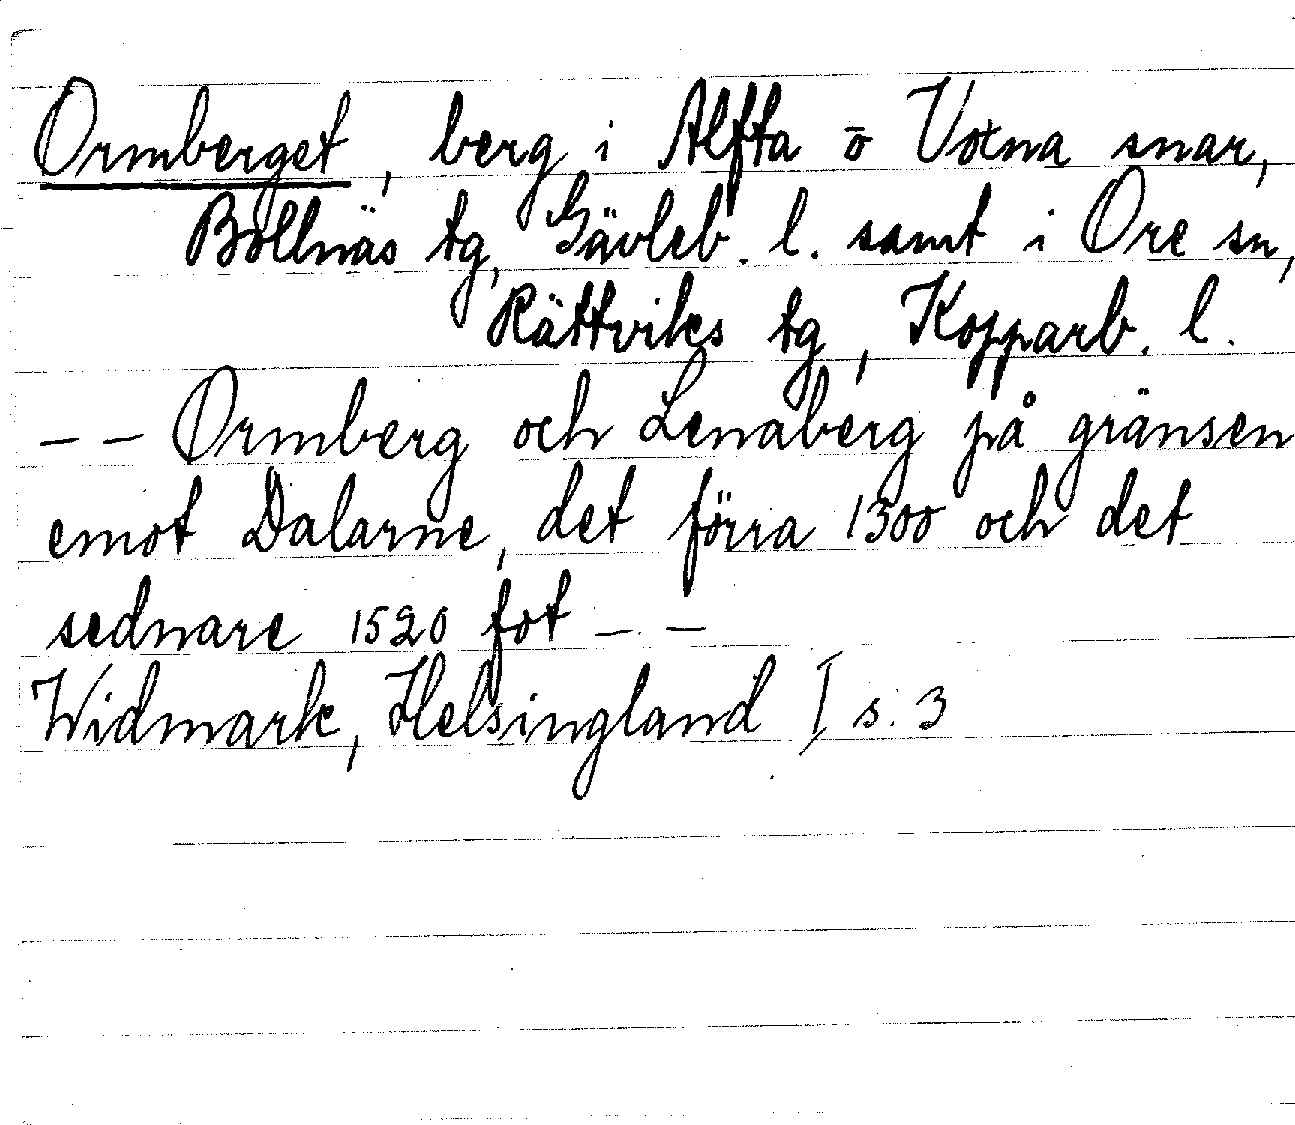 Ormberget, berg i Alfta ō Voxna snar,
Bollnäs tg, Gävleb. l. samt i Ore sn,
Rättviks tg, Kopparb. l.
– – Ormberg och Lenaberg på gränsen
emot Dalarne, det förra 1300 och det
sednare 1520 fot – –
Widmark, Helsingland I s. 3